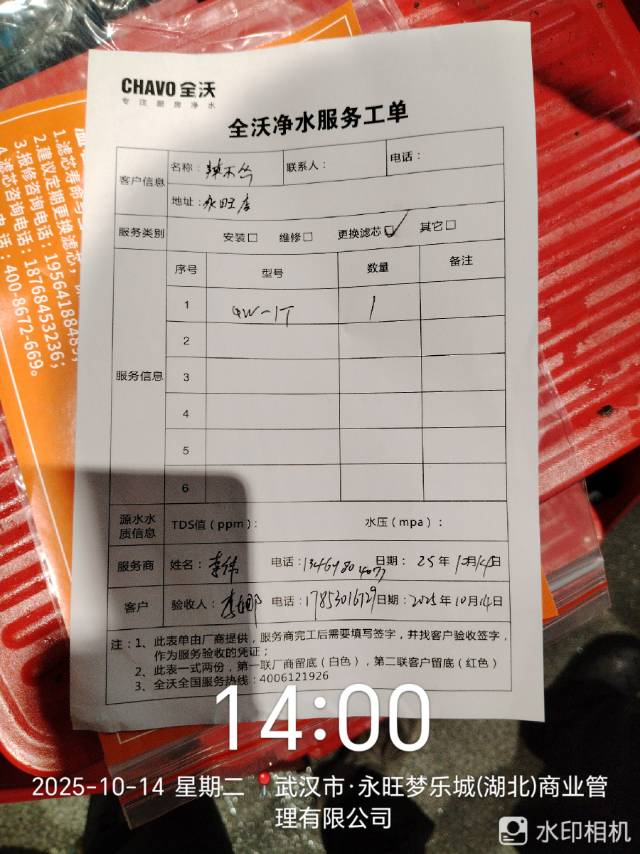 CHAVO 全沃
专注厨房净水
全沃净水服务工单
客户信息
名称：辣不怂
联系人：
电话：
地址：永旺店
服务类别
安装□ 维修□ 更换滤芯☑ 其它□
服务信息
序号 型号 数量 备注
1 QW-1T 1
2
3
4
5
6
源水水质信息
TDS值（ppm）： 水压（mpa）：
服务商 姓名：李伟 电话： 日期：25年10月14日
客户 验收人： 电话：17853016729 日期：2025年10月14日
注：1、此表单由厂商提供，服务商完工后需要填写签字，并找客户验收签字，
作为服务验收的凭证；
2、此表一式两份，第一联厂商留底（白色），第二联客户留底（红色）
3、全沃全国服务热线：4006121926
1.滤芯寿命与
2.建议定期更换滤芯，
3.报修咨询电话：19564188489；
询电话：18768453236；
4.滤芯咨
电话：400-8672-669。
14:00
2025-10-14 星期二 武汉市·永旺梦乐城(湖北)商业管
理有限公司
水印相机